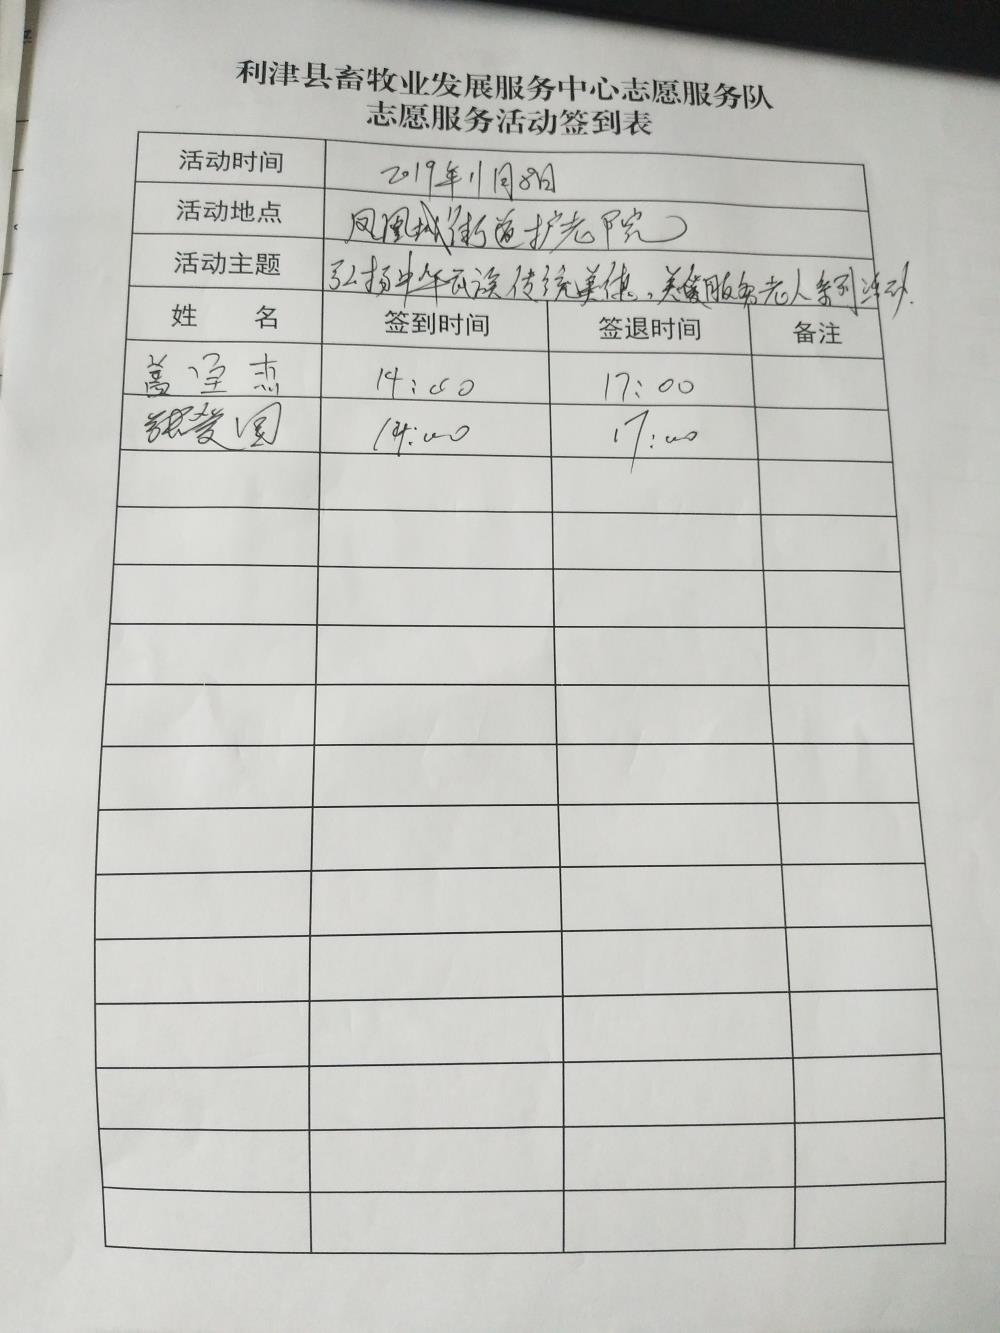 利津县畜牧业发展服务中心志愿服务队
志愿服务活动签到表
活动时间 2019年11月8日
活动地点 凤凰城街道护老院
活动主题 弘扬中华民族传统美德,关爱服务老人系列活动.
姓 名 签到时间 签退时间 备注
盖 杰 14:00 17:00
张爱国 14:00 17:00